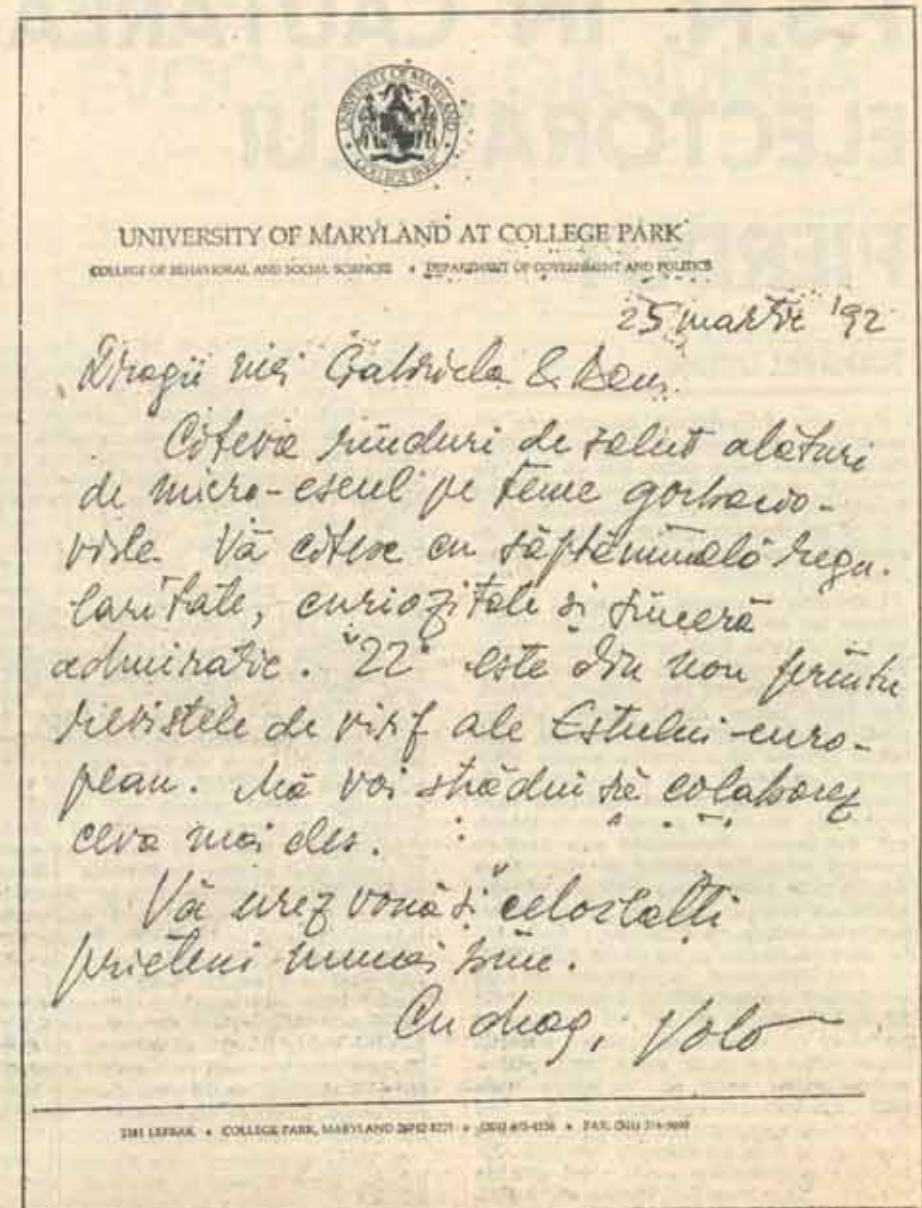 UNIVERSITY OF MARYLAND
COLLEGE PARK
UNIVERSITY OF MARYLAND AT COLLEGE PARK
COLLEGE OF BEHAVIORAL AND SOCIAL SCIENCES • DEPARTMENT OF GOVERNMENT AND POLITICS
25 martie '92
Dragii mei Gabriela & Dan,
Cîteva rînduri de salut alături
de micro-eseul pe teme gorbacio-
viste. Vă citesc cu săptămînală regu-
laritate, curiozitate și sinceră
admirație. "22" este din nou printre
revistele de vîrf ale Estului euro-
pean. Mă voi strădui să colaborez
ceva mai des.
Vă urez vouă și celorlalți
prieteni numai bine.
Cu drag,
LEFRAK • COLLEGE PARK, MARYLAND • • FAX: